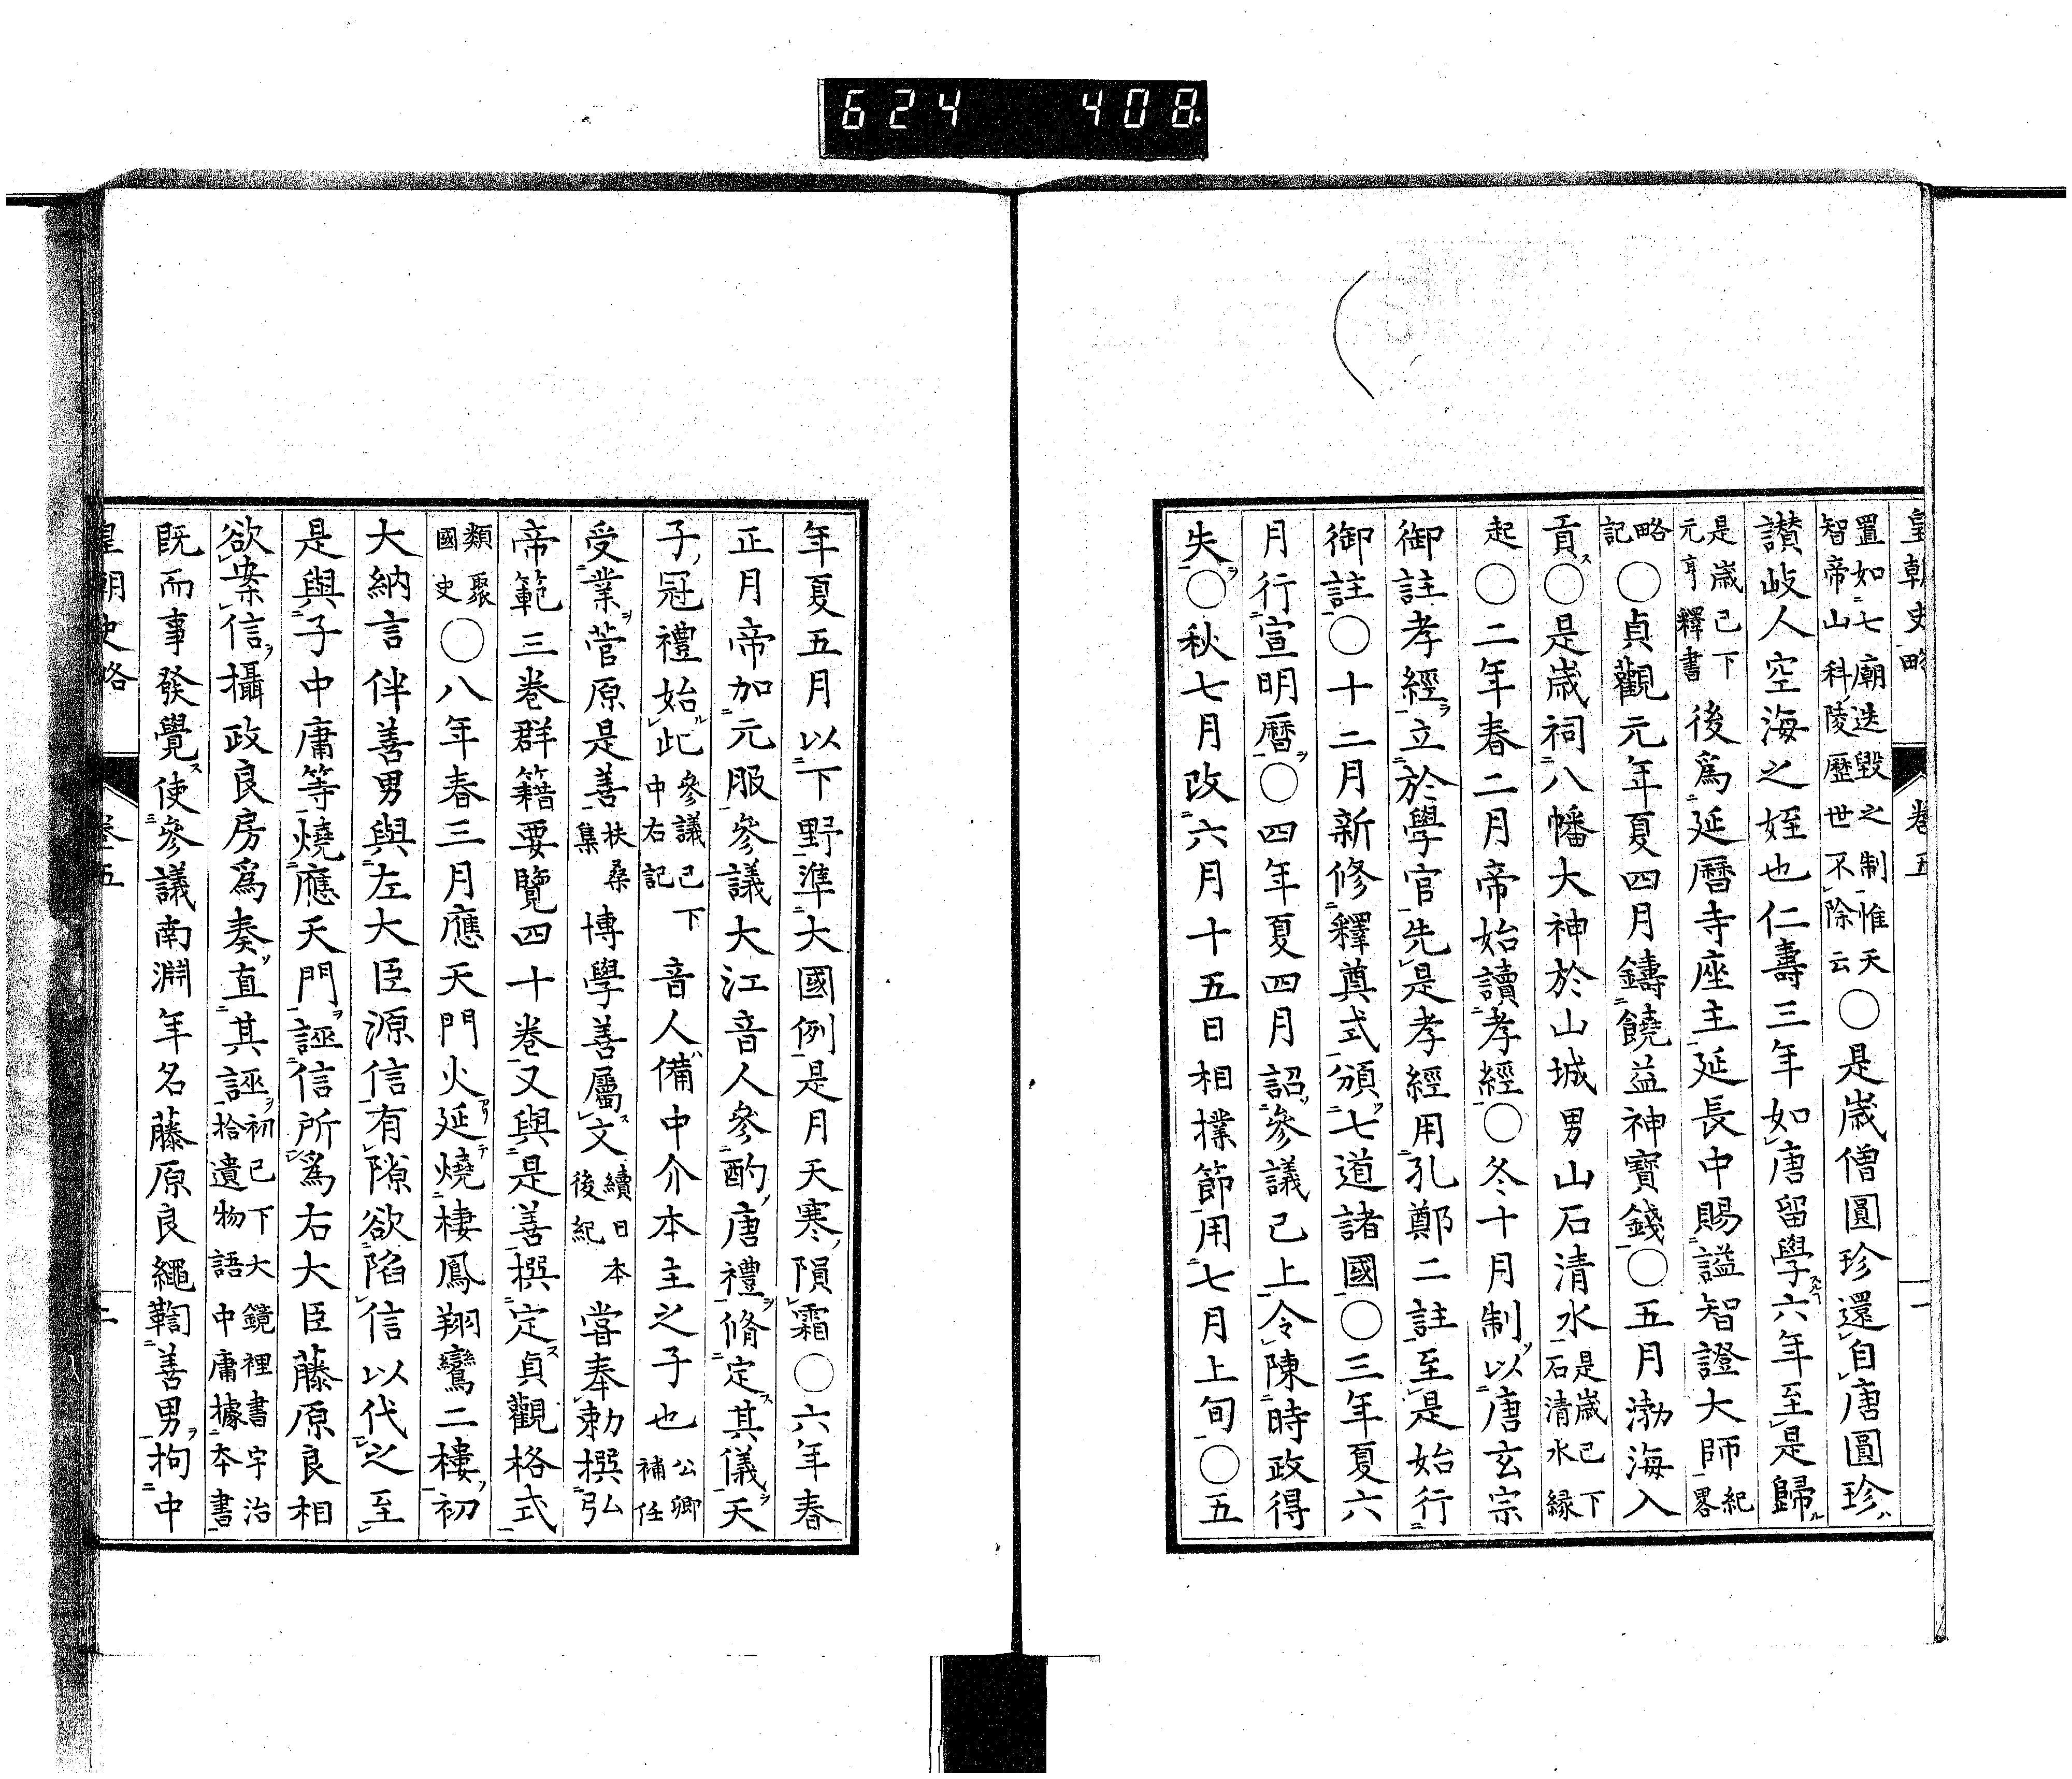 624 408
皇朝史略 卷五 一
置如七廟迭毀之制惟天
智帝山科陵歷世不除云○是歲僧圓珍還自唐圓珍ハ
讃岐人空海之姪也仁壽三年如唐留學六年至是歸ル
是歲已下
元亨釋書後爲延曆寺座主延長中賜謚智證大師紀畧
略記○貞觀元年夏四月鑄饒益神寶錢○五月渤海入
貢ス○是歲祠八幡大神於山城男山石清水是歲已下石清水縁
起○二年春二月帝始讀孝經○冬十月制ソ以唐玄宗
御註孝經ヲ立於學官先是孝經用孔鄭二註至是始行
御註○十二月新修釋奠式頒七道諸國○三年夏六
月行宣明曆ヲ○四年夏四月詔ソ參議已上令陳時政得
失ヲ○秋七月改六月十五日相撲節用七月上旬○五
年夏五月以下野準大國例是月天寒隕霜○六年春
正月帝加元服參議大江音人參酌唐禮ヲ脩定ス其儀ヲ天
子ノ冠禮始ル此參議已下中右記音人備中介本主之子也公卿補任
受業ヲ菅原是善扶桑集博學善屬文ス續日本後紀嘗奉勅撰弘
帝範三卷群籍要覽四十卷又與是善撰定ス貞觀格式
類聚國史○八年春三月應天門火延テ燒棲鳳翔鸞二樓ヲ初
大納言伴善男與左大臣源信有隙欲陷信以代之至
是與子中庸等燒應天門ヲ誣信所爲右大臣藤原良相
欲案信ヲ攝政良房爲奏ソ直其誣ヲ初已下大鏡裡書宇治拾遺物語中庸據本書
既而事發覺ス使參議南淵年名藤原良繩鞫善男ヲ拘中
皇朝史略 卷五 二